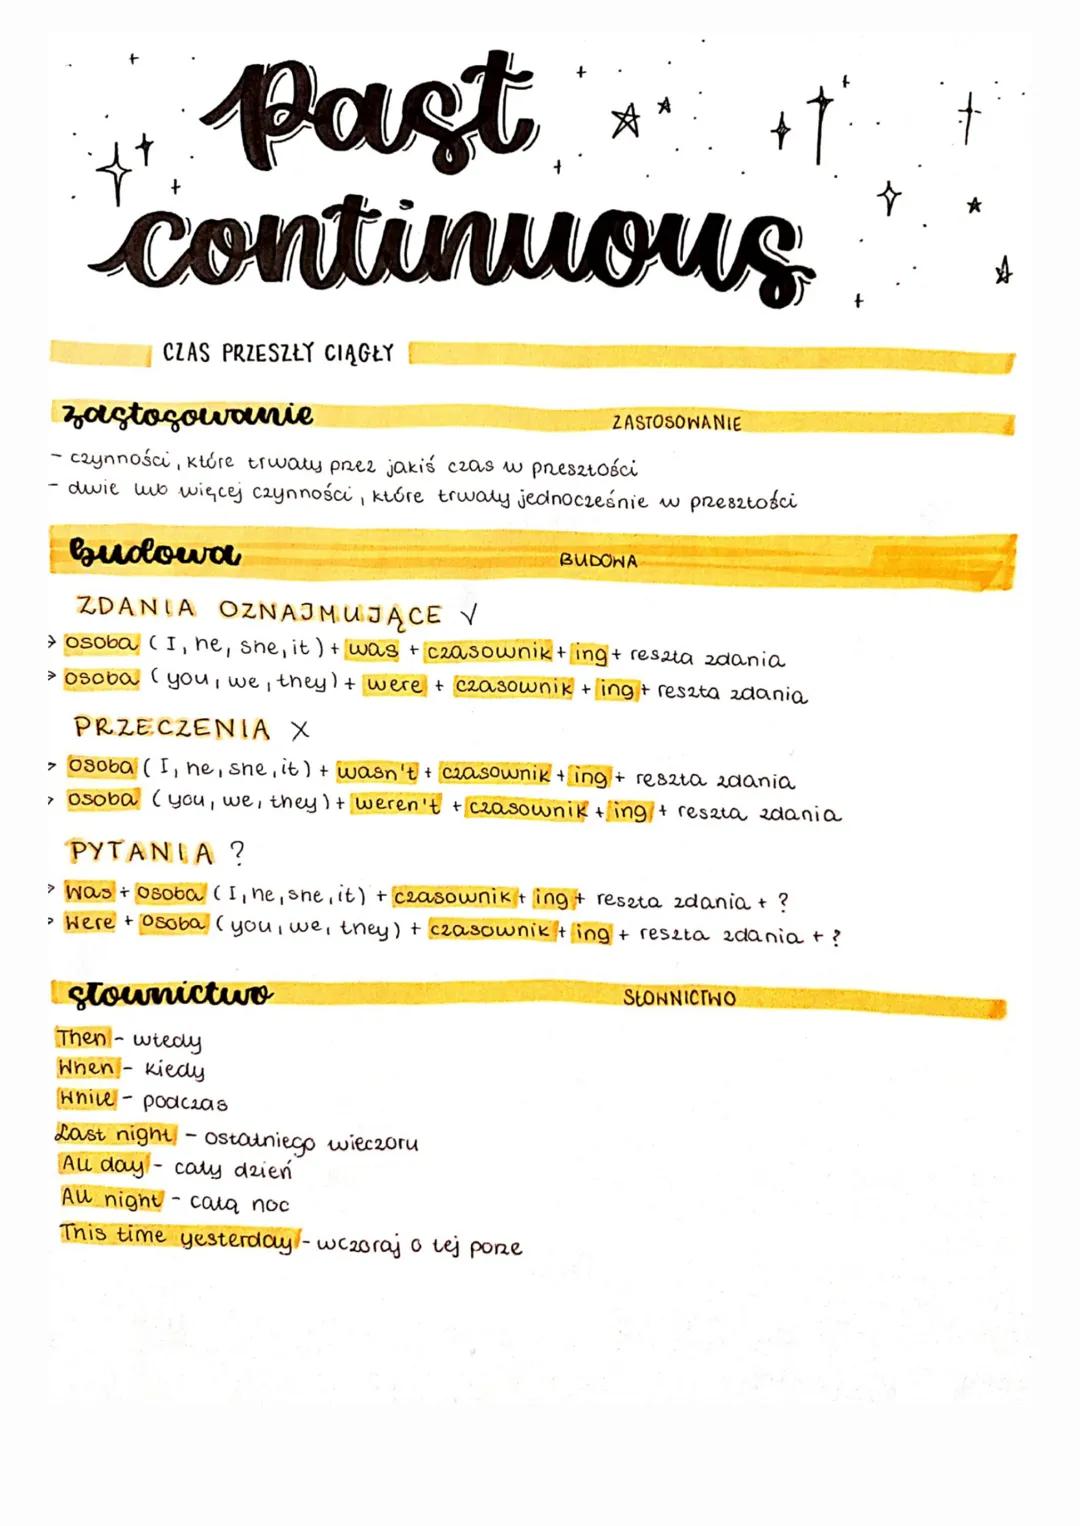 Past
continuous
CZAS PRZESZŁY CIĄGŁY
zastosowanie ZASTOSOWANIE
- czynności, które trwały przez jakiś czas w przeszłości
- dwie lub więcej czynności, które trwały jednocześnie w przeszłości
budowa BUDOWA
ZDANIA OZNAJMUJĄCE ✓
> osoba (I, he, she, it) + was + czasownik + ing + reszta zdania
> osoba (you, we, they) + were + czasownik + ing + reszta zdania
PRZECZENIA X
> osoba (I, he, she, it) + wasn't + czasownik + ing + reszta zdania
> osoba (you, we, they) + weren't + czasownik + ing + reszta zdania
PYTANIA ?
> Was + osoba (I, he, she, it) + czasownik + ing + reszta zdania + ?
> Were + osoba (you, we, they) + czasownik + ing + reszta zdania + ?
słownictwo SŁOWNICTWO
Then - wtedy
When - kiedy
While - podczas
Last night - ostatniego wieczoru
All day - cały dzień
All night - całą noc
This time yesterday - wczoraj o tej porze